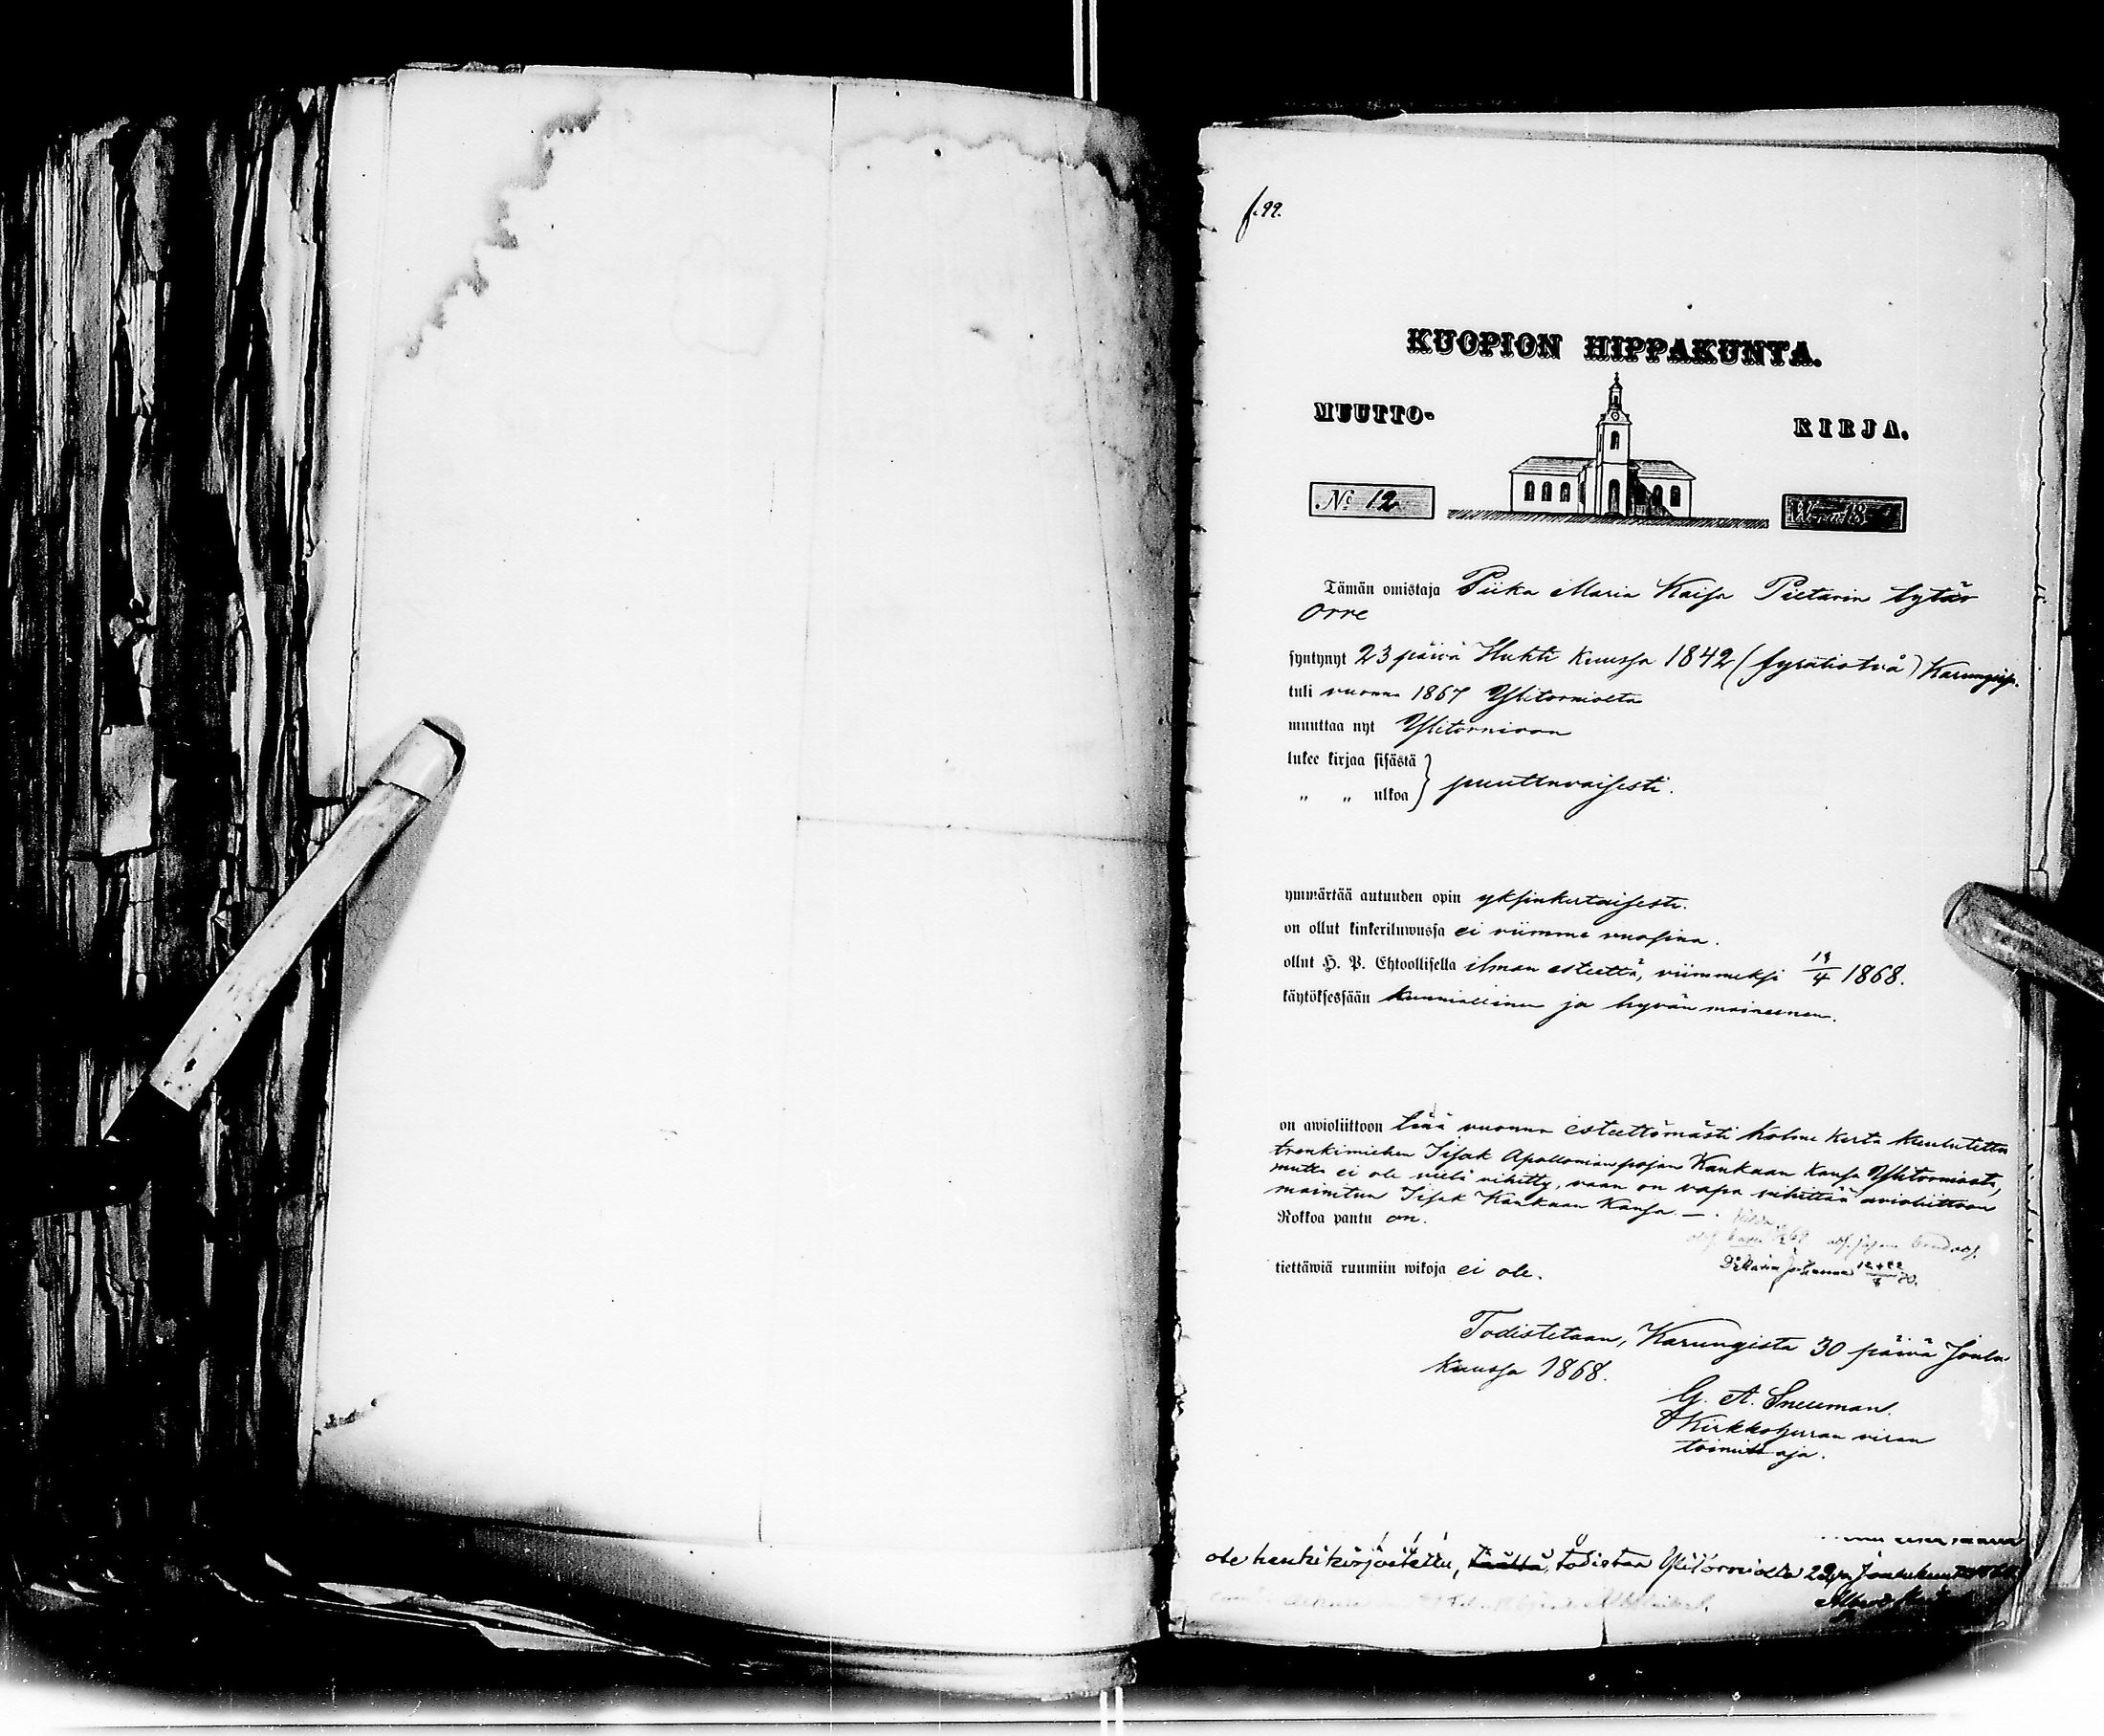 f. 99.
KUOPION HIPPAKUNTA.
MUUTTO- KIRJA.
No 12 W—na 18
Tämän omistaja Piika Maria Kaisa Pietarin tytär
Orre
syntynyt 23 päivä Huhti kuussa 1842 Karungissa.
tuli vuonna 1867 Ylitorniolta
muuttaa nyt Ylitornioon
lukee kirjaa sisästä
„ „ ulkoa } puuttuvaisesti.
ymmärtää autuuden opin yksinkertaisesti.
on ollut kinkeriluwussa ei viimme vuosina.
ollut H. P. Ehtoollisella ilman esteettä, viimmeksi 19/4 1868.
käytöksessään kunniallinen ja hyvän maineenen.
on awioliittoon tänä vuonna esteettömästi kolme kerta kuulutettu
trenkimiehen Iisak Apollonianpojan Kankaan kansa Ylitorniosta,
mutta ei ole vielä vihitty, vaan on vapa vihittää avioliittoon
mainitun Iisak Kankaan kansa. —
Rokkoa pantu on.
tiettäwiä ruumiin wikoja ei ole.
Todistetaan, Karungista 30 päivä Joulu
kuussa 1868.
G. A. Sneuman.
Kirkkoherran viran
toimittaja.
ole henkikirjoitettu, todistaa Ylitorniolla 29 Joulukuuta